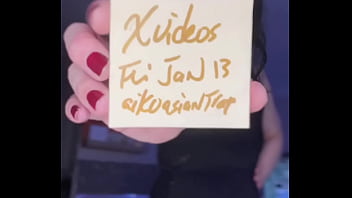 Xvideos
Fri Jan 13
aikoasianTrap